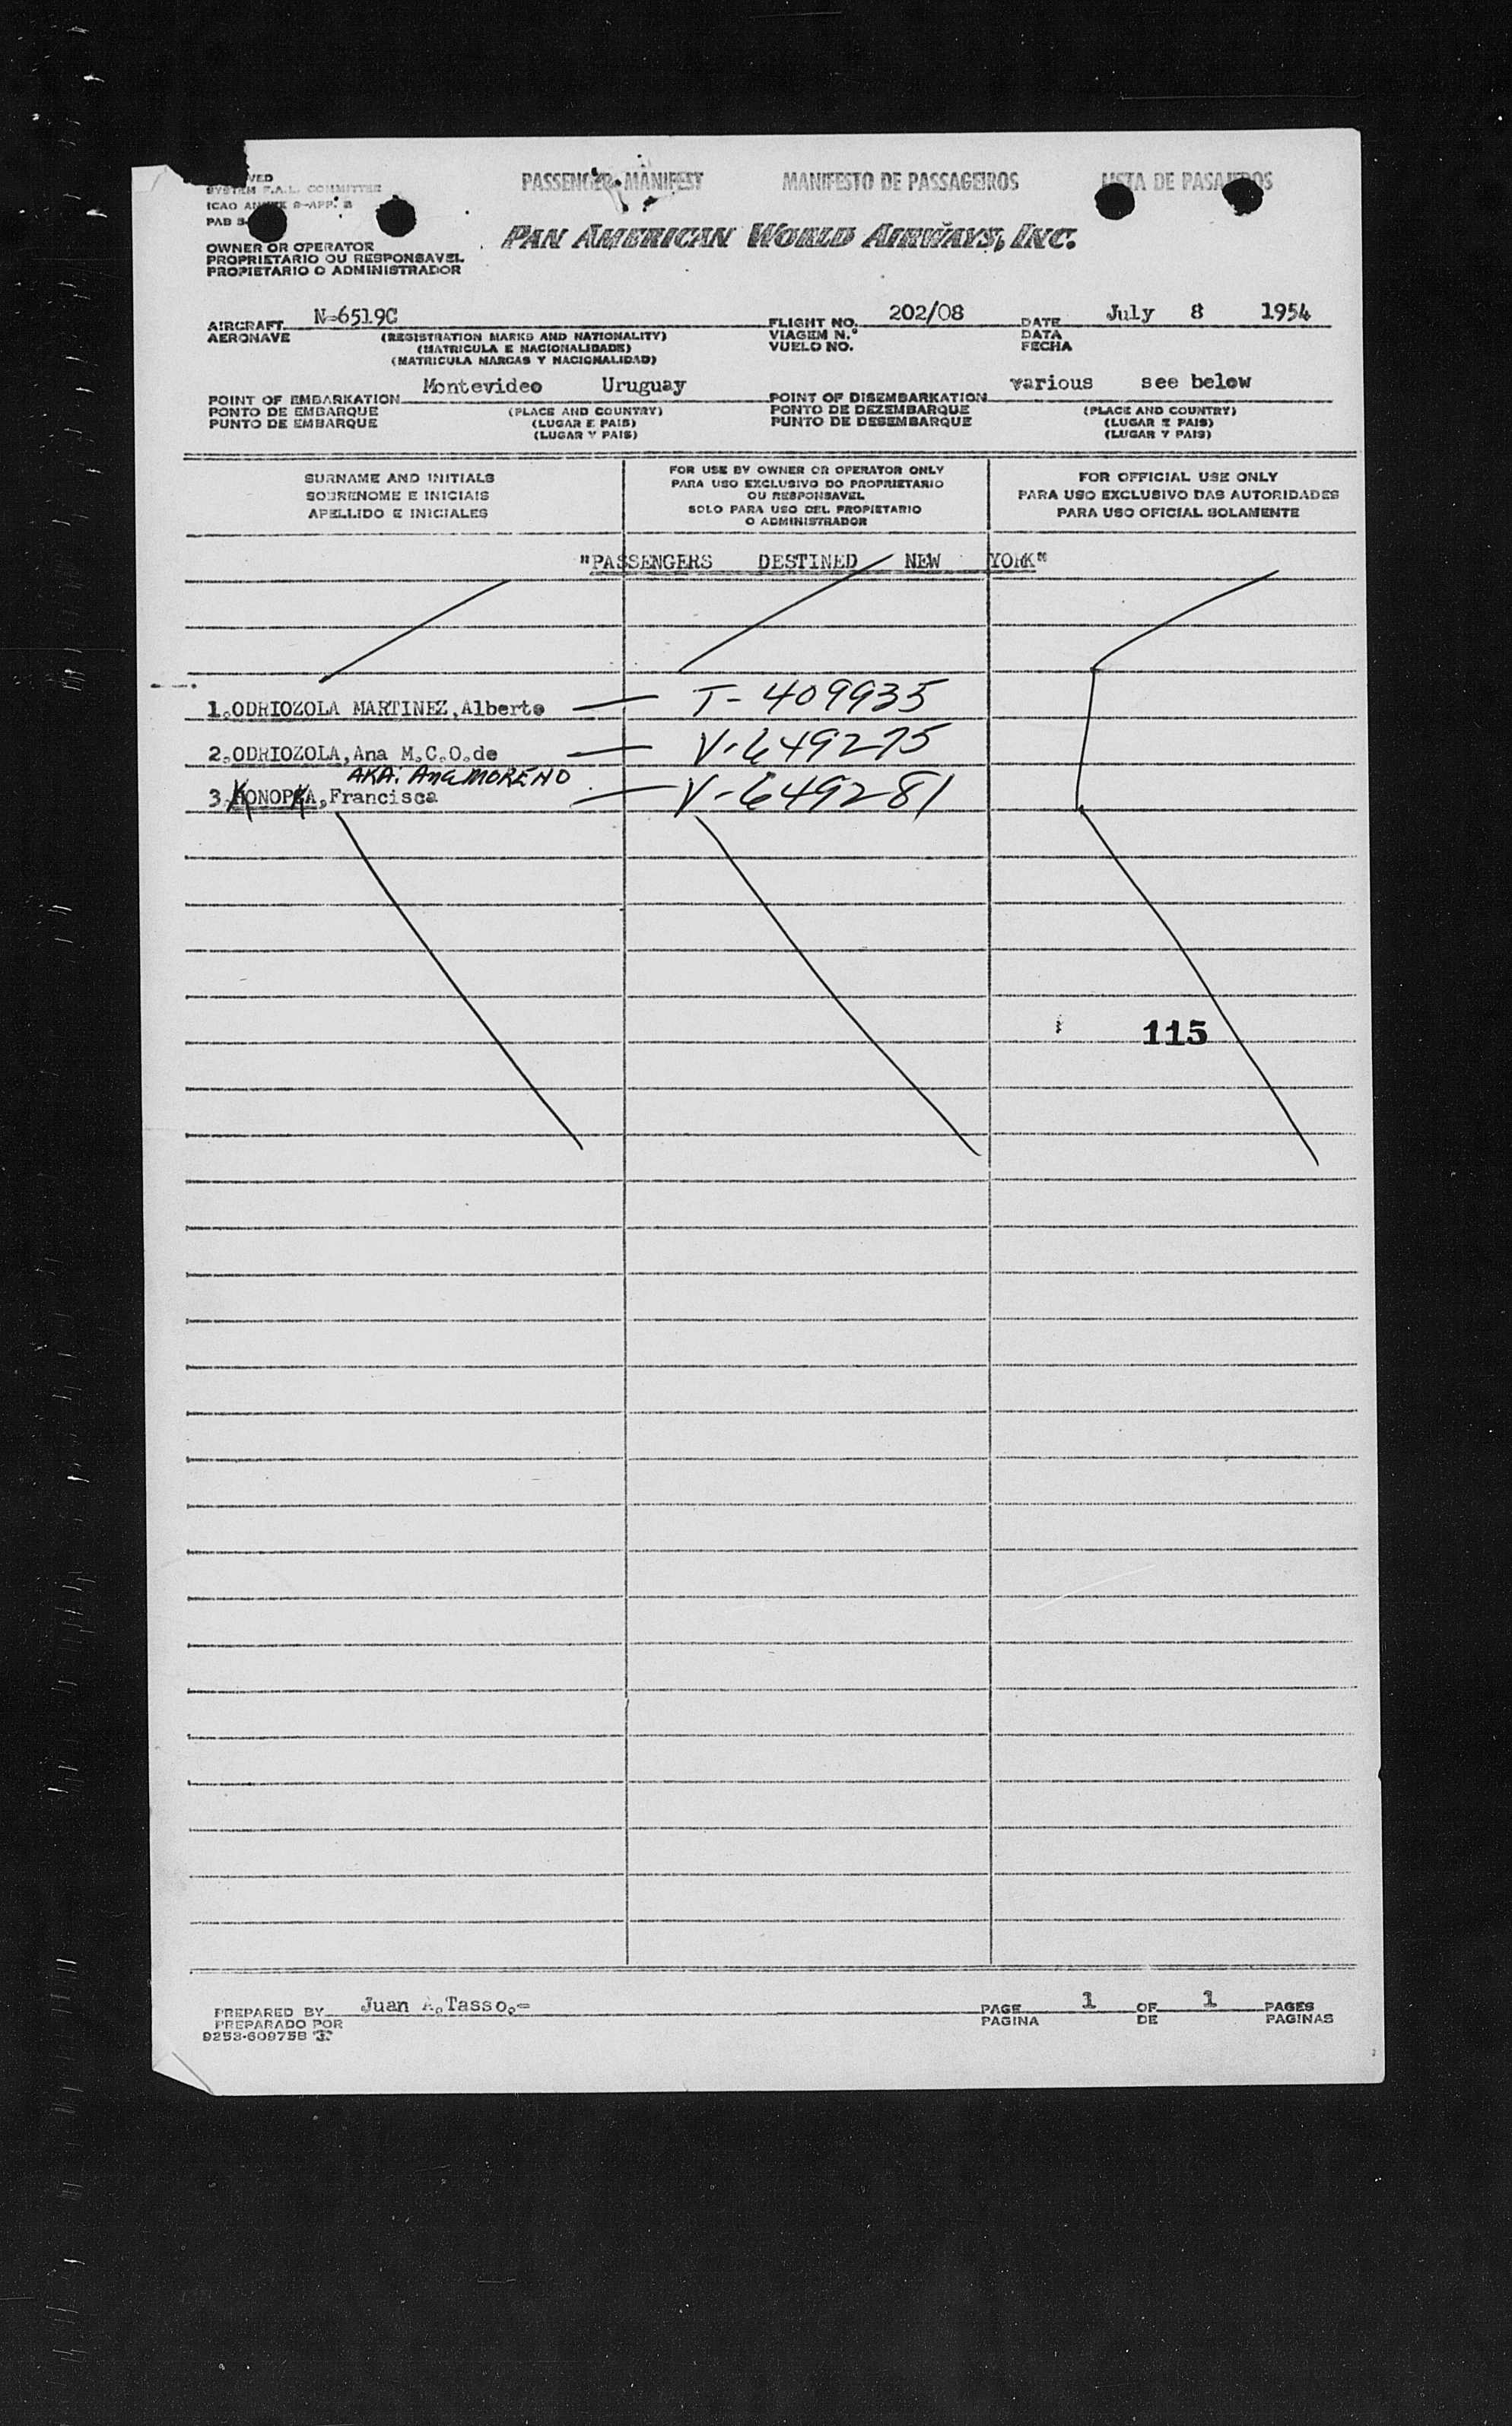 PASSENGER MANIFEST MANIFESTO DE PASSAGEIROS LISTA DE PASAJEROS
SYSTEM F.A.L. COMMITTEE
ICAO
PAB
PAN AMERICAN WORLD AIRWAYS, INC.
OWNER OR OPERATOR
PROPRIETARIO OU RESPONSAVEL
PROPIETARIO O ADMINISTRADOR
AIRCRAFT N-6519C FLIGHT NO. 202/08 DATE July 8 1954
AERONAVE (REGISTRATION MARKS AND NATIONALITY) VIAGEM N.º DATA
(MATRICULA E NACIONALIDADE) VUELO NO. FECHA
(MATRICULA MARCAS Y NACIONALIDAD)
POINT OF EMBARKATION Montevideo Uruguay POINT OF DISEMBARKATION various see below
PONTO DE EMBARQUE (PLACE AND COUNTRY) PONTO DE DEZEMBARQUE (PLACE AND COUNTRY)
PUNTO DE EMBARQUE (LUGAR E PAIS) PUNTO DE DESEMBARQUE (LUGAR E PAIS)
(LUGAR Y PAIS) (LUGAR Y PAIS)
SURNAME AND INITIALS
SOBRENOME E INICIAIS
APELLIDO E INICIALES
FOR USE BY OWNER OR OPERATOR ONLY
PARA USO EXCLUSIVO DO PROPRIETARIO
OU RESPONSAVEL
SOLO PARA USO DEL PROPIETARIO
O ADMINISTRADOR
FOR OFFICIAL USE ONLY
PARA USO EXCLUSIVO DAS AUTORIDADES
PARA USO OFICIAL SOLAMENTE
"PASSENGERS DESTINED NEW YORK"
1.ODRIOZOLA MARTINEZ,Alberto — T-409935
2.ODRIOZOLA,Ana M.C.O.de — V-649275
AKA. Ana MORENO
3.KONOPKA,Francisca — V-649281
115
PREPARED BY Juan A.Tasso.- PAGE 1 OF 1 PAGES
PREPARADO POR PAGINA DE PAGINAS
9253-60975B